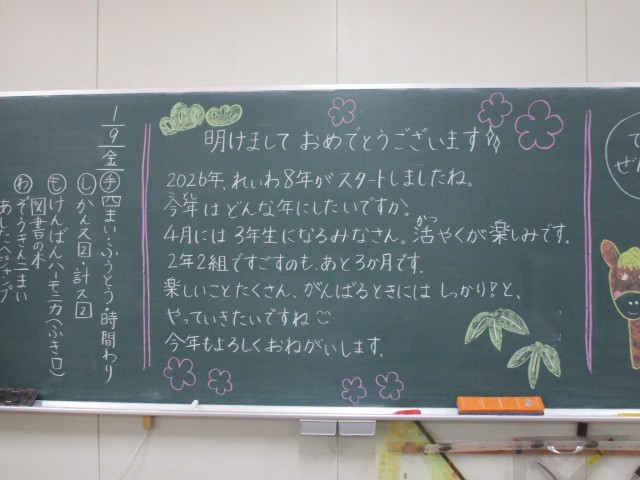 明けまして おめでとうございます
2026年、れいわ8年がスタートしましたね。
今年は どんな年にしたいですか。
かつ
4月には 3年生になるみなさん。活やくが楽しみです。
2年2組ですごすのも、あと3か月です。
楽しいことたくさん、がんばるときには しっかり!と、
やっていきたいですね
今年もよろしくおねがいします。
1/9 金
㋠四まい・ふうとう・時間わり
㋛かんス②・計ス②
㋲けんばんハーモニカ(ふき口)
図書の本
㋻ぞうきん二まい
あしたへジャンプ